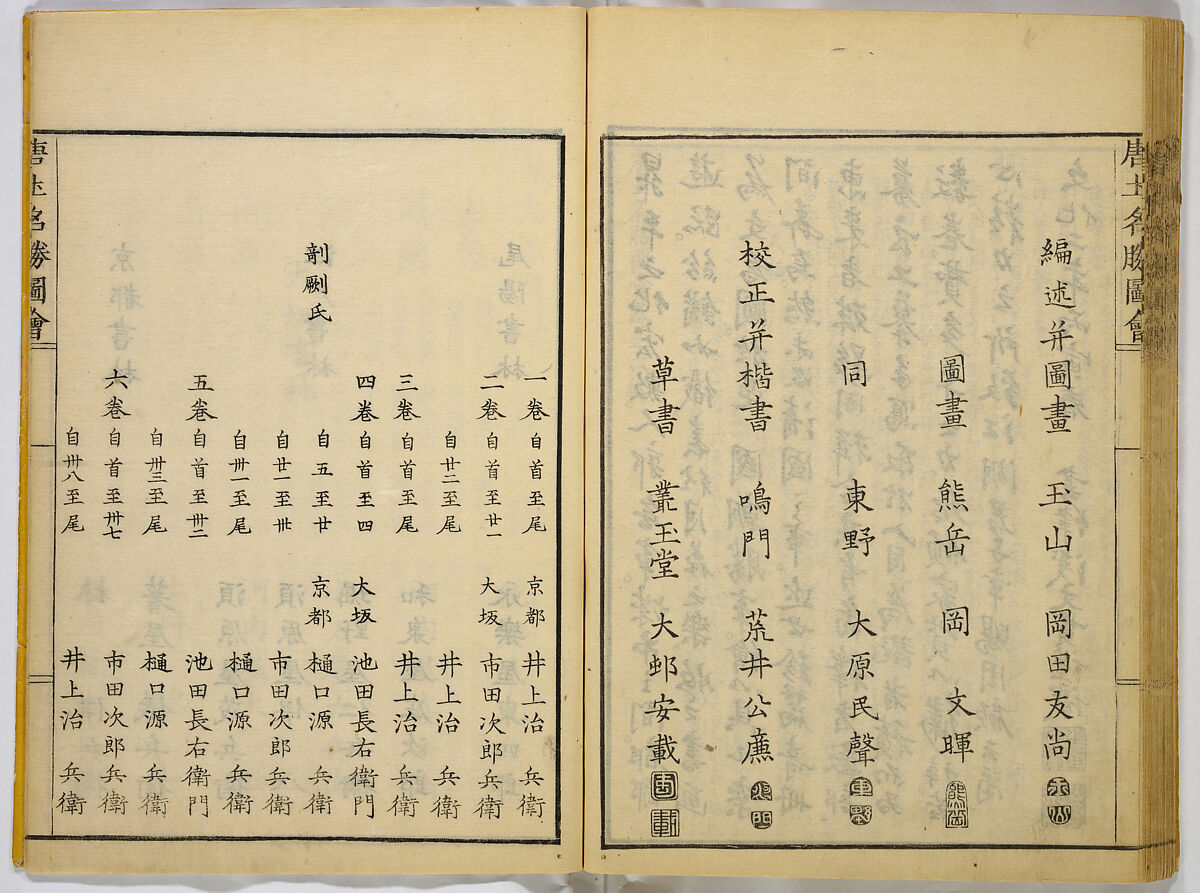 唐土名勝圖會
編述并圖畫 玉山 岡田友尚
圖畫 熊岳 岡 文暉
同 東野 大原民聲
校正并楷書 鳴門 荒井公廉
草書 叢玉堂 大邨安載
一卷 自首至尾 京都 井上治 兵衛
二卷 自首至廿一 大坂 市田次郎兵衛
自廿二至尾 井上治 兵衛
三卷 自首至尾 井上治 兵衛
四卷 自首至四 大坂 池田長右衛門
剞劂氏 自五至廿 京都 樋口源 兵衛
自廿一至卅 市田次郎 兵衛
自卅一至尾 樋口源 兵衛
五卷 自首至卅二 池田長右衛門
自卅三至尾 樋口源 兵衛
六卷 自首至卅七 市田次郎 兵衛
自卅八至尾 井上治 兵衛
唐土名勝圖會